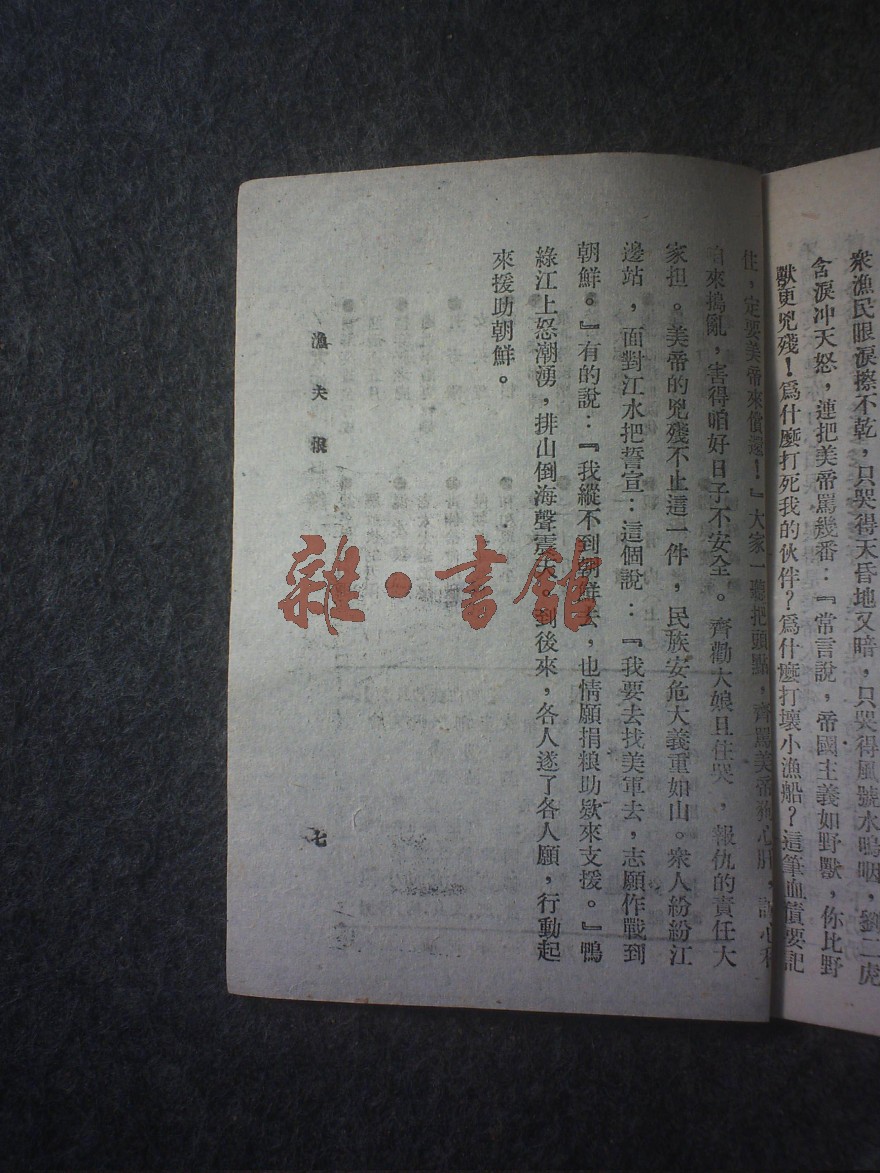 衆漁民眼淚擦不乾，只哭得天昏地又暗，只哭得風號水嗚咽，劉二虎
含淚冲天怒，連把美帝罵幾番：『常言說，帝國主義如野獸，你比野
獸更兇殘！爲什麼打死我的伙伴？爲什麼打壞小漁船？這筆血債要記
住，定要美帝來償還！』大家一聽把頭點，齊罵美帝狗心肝，
咱來搗亂，害得咱好日子不安全。齊勸大娘且住哭，報仇的責任大
家担。美帝的兇殘不止這一件，民族安危大義重如山。衆人紛紛江
邊站，面對江水把誓宣：這個說：『我要去找美軍去，志願作戰到
朝鮮。』有的說：『我縱不到朝鮮去，也情願捐粮助欵來支援。』鴨
綠江上怒潮湧，排山倒海聲震天，到後來，各人遂了各人願，行動起
來援助朝鮮。
漁夫恨
七
雜·書館